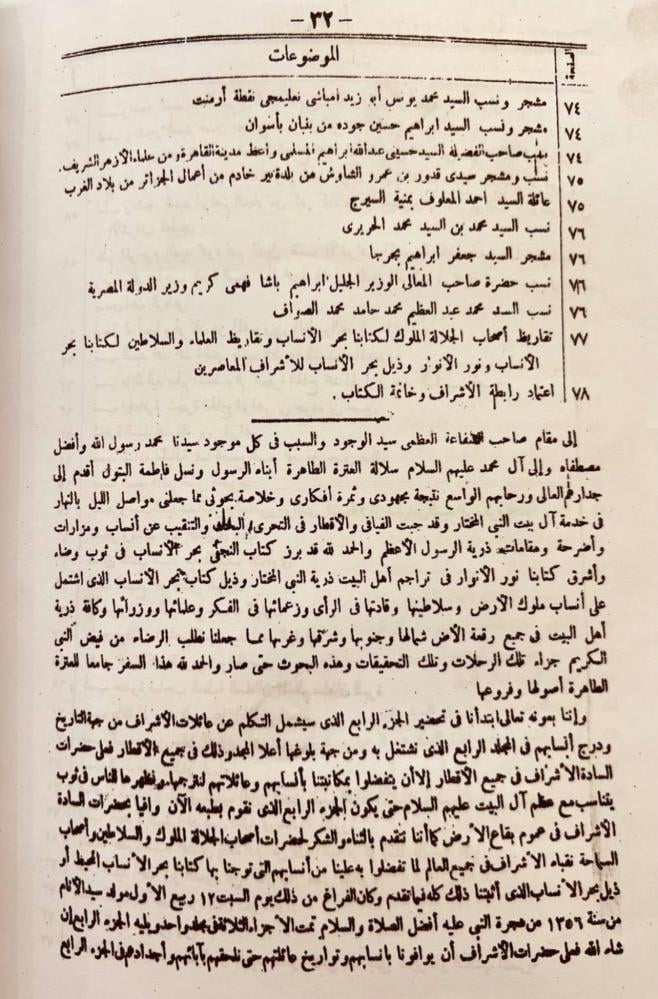 - ٣٢ -
الصفحة الموضوعات
٧٤ مشجر ونسب السيد محمد يونس أبو زيد امباشى تعليمجى نقطة أرمنت
٧٤ مشجر ونسب السيد ابراهيم حسين جوده من بنبان بأسوان
٧٤ نسب صاحب الفضيلة السيد حسينى عبد الله ابراهيم المسلمى واعظ مدينة القاهرة ومن علماء الأزهر الشريف.
٧٥ نسب ومشجر سيدى قدور بن عمرو الشاوش من بلدة بير خادم من أعمال الجزائر من بلاد الغرب
٧٥ عائلة السيد احمد المعلوف بمنية السيرج
٧٦ نسب السيد محمد بن السيد محمد الحريرى
٧٦ مشجر السيد جعفر ابراهيم بجرجا
٧٦ نسب حضرة صاحب المعالى الوزير الجليل ابراهيم باشا فهمى كريم وزير الدولة المصرية
٧٦ نسب السيد محمد عبد العظيم محمد حامد محمد الصواف
٧٧ تقاريظ أصحاب الجلالة الملوك لكتابنا بحر الأنساب وتقاريظ العلماء والسلاطين لكتابنا بحر
الأنساب ونور الأنوار وذيل بحر الأنساب للأشراف المعاصرين
٧٨ اعتماد رابطة الأشراف وخاتمة الكتاب .
إلى مقام صاحب الشفاعة العظمى سيد الوجود والسبب فى كل موجود سيدنا محمد رسول الله وأفضل
مصطفاه وإلى آل محمد عليهم السلام سلالة العترة الطاهرة أبناء الرسول ونسل فاطمة البتول أقدم إلى
جدارهم العالى ورحابهم الواسع نتيجة مجهودى وثمرة أفكارى وخلاصة بحوثى مما جعلنى مواصل الليل بالنهار
فى خدمة آل بيت النبى المختار وقد جبت الفيافى والأقطار فى التحرى والبحث والتنقيب عن أنساب ومزارات
وأضرحة ومقامات ذرية الرسول الأعظم والحمد لله قد برز كتاب النجفى بحر الأنساب فى ثوب وضاء
وأشرق كتابنا نور الأنوار فى تراجم أهل البيت ذرية النبى المختار وذيل كتاب بحر الأنساب الذى اشتمل
على أنساب ملوك الأرض وسلاطينها وقادتها فى الرأى وزعمائها فى الفكر وعلمائها ووزرائها وكافة ذرية
أهل البيت فى جميع رقعة الأض شمالها وجنوبها وشرقها وغربها مما جعلنا نطلب الرضاء من فيض النبى
الكريم جزاء تلك الرحلات وتلك التحقيقات وهذه البحوث حتى صار والحمد لله هذا السفر جامعا للعترة
الطاهرة أصولها وفروعها
وإننا بعونه تعالى ابتدأنا فى تحضير الجزء الرابع الذى سيشمل التكلم عن عائلات الأشراف من جهة التاريخ
ودرج أنسابهم فى المجلد الرابع الذى نشتغل به ومن جهة بلوغها أعلا المجد وذلك فى جميع الأقطار فعلى حضرات
السادة الأشراف فى جميع الأقطار إلا أن يتفضلوا بمكاتبتنا بأنسابهم وعائلاتهم لنترجمها ونظهرها للناس فى ثوب
يتناسب مع عظم آل البيت عليهم السلام حتى يكون الجزء الرابع الذى نقوم بطبعه الآن وافيا بحضرات السادة
الأشراف فى عموم بقاع الأرض كما أننا نتقدم بالثناء والشكر لحضرات أصحاب الجلالة الملوك والسلاطين وأصحاب
السماحة نقباء الأشراف فى جميع العالم لما تفضلوا به علينا من أنسابهم التى توجنا بها كتابنا بحر الأنساب المحيط أو
ذيل بحر الأنساب الذى أثبتنا ذلك كله فيما تقدم وكان الفراغ من ذلك يوم السبت ١٢ ربيع الأول مولد سيد الأنام
من سنة ١٣٥٦ من هجرة النبى عليه أفضل الصلاة والسلام تمت الأجزاء الثلاثة فى مجلد واحد ويليه الجزء الرابع إن
شاء الله فعلى حضرات الأشراف أن يوافونا بانسابهم وتواريخ عائلتهم حتى نلحقهم بآبائهم وأجدادهم فى الجزء الرابع